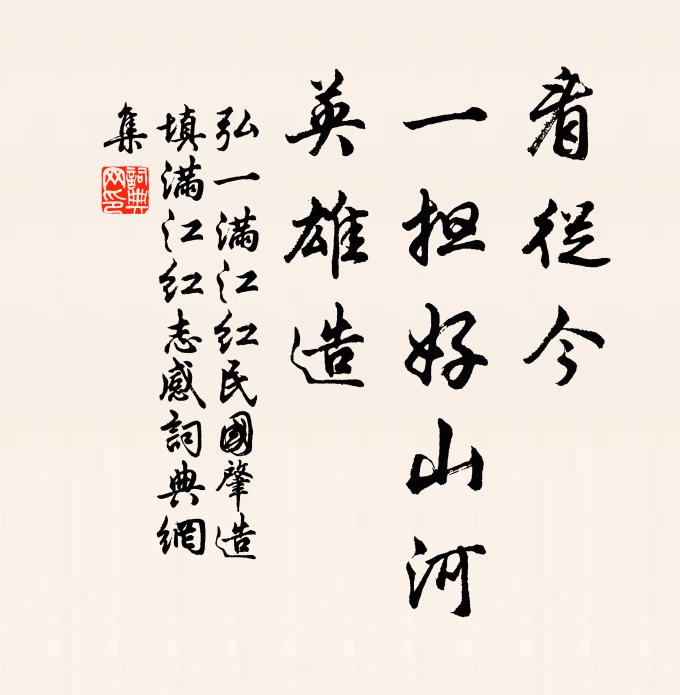 看從今
一担好山河
英雄造
弘一滿江紅民國肇造
填滿江紅志感詞典網
集
詞典
网印